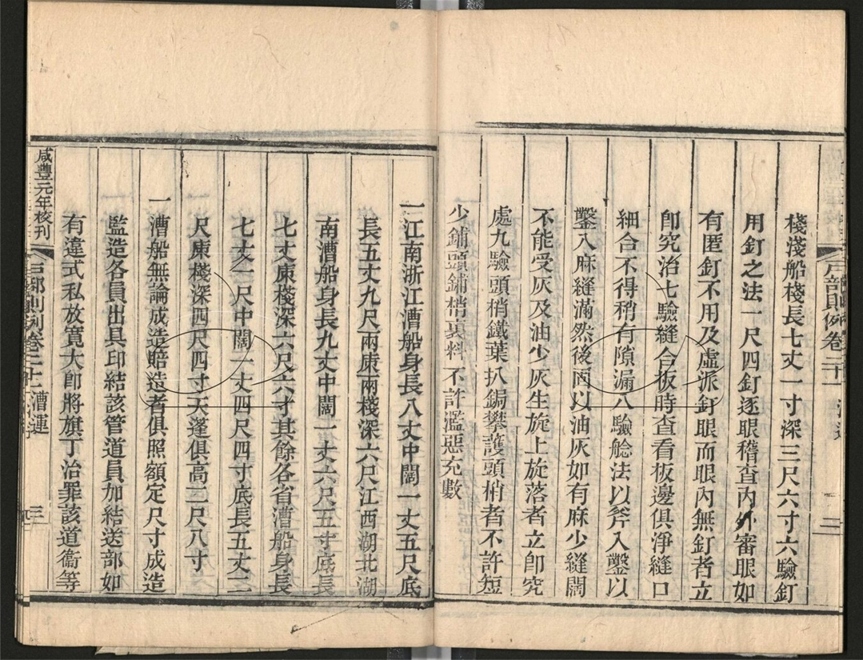 戶部則例卷二十一
二
棧淺船棧長七丈一寸深三尺六寸六驗釘
用釘之法一尺四釘逐眼稽查內外審眼如
有匿釘不用及虛派釘眼而眼內無釘者立
卽究治七驗縫合板時查看板邊俱淨縫口
細合不得稍有隙漏八驗艌法以斧入鑿以
鑿入麻縫滿然後酒以油灰如有麻少縫闊
不能受灰及油少灰生旋上旋落者立卽究
處九驗頭梢鐵葉扒鋦攀護頭梢者不許短
少鋪頭鋪梢裏料不許濫惡充數
一江南浙江漕船身長八丈中闊一丈五尺底
長五丈九尺兩廒兩棧深六尺江西湖北湖
南漕船身長九丈中闊一丈六尺五寸底長
七丈廒棧深六尺六寸其餘各省漕船身長
七丈一尺中闊一丈四尺四寸底長五丈二
尺廒棧深四尺四寸天蓬俱高二尺八寸
一漕船無論成造賠造者俱照額定尺寸成造
監造各員出具印結該管道員加結送部如
有違式私放寬大卽將旗丁治罪該道衞等
咸豐元年校刊
戶部則例卷二十一 漕運
三